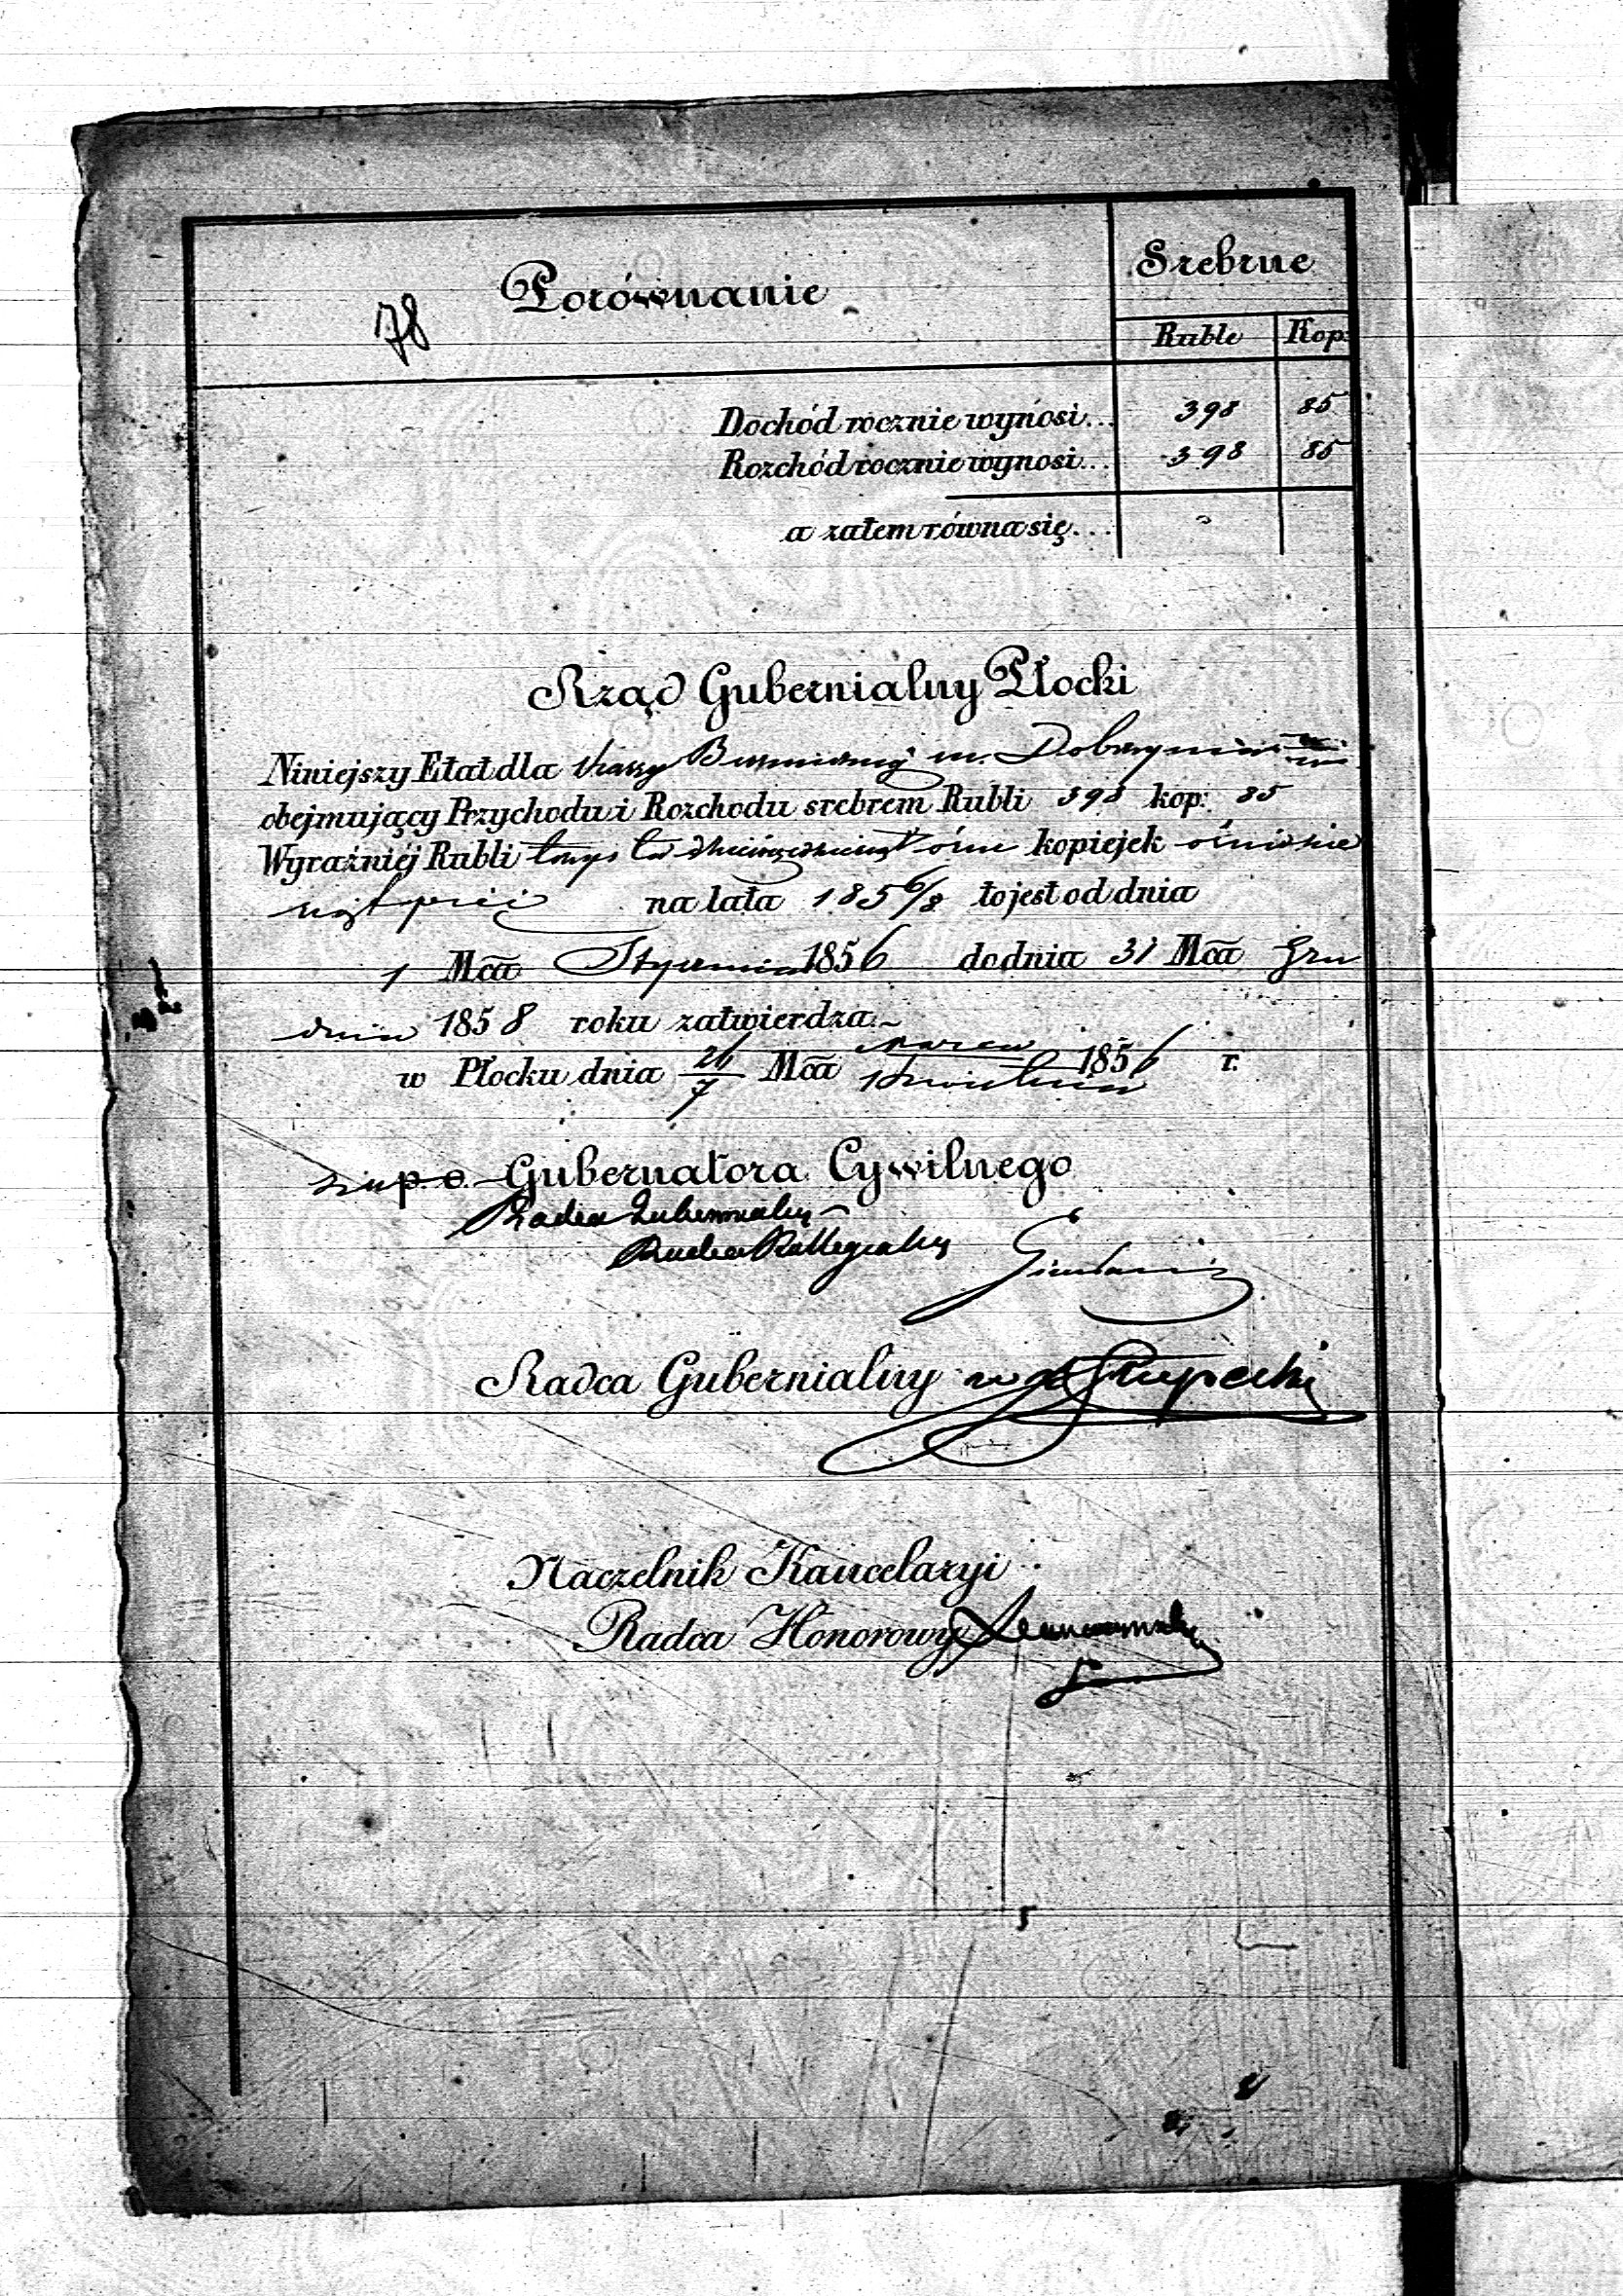 Porównanie
Srebrne
78
Ruble Kop:
Dochód rocznie wynosi... 398 85
Rozchód rocznie wynosi... 398 85
a zatem równa się...
Rząd Gubernialny Płocki
Niniejszy Etat dla Kassy m. Dobrzynia
obejmujący Przychodu i Rozchodu srebrem Rubli 398 kop: 85
Wyraźniéj Rubli trzysta dziewięćdziesiąt ośm kopiejek ośmdzie
siąt pięć na lata 1856/8 to jest od dnia
1 Mca Stycznia 1856 do dnia 31 Mca Gru
dnia 1858 roku zatwierdza.~
w Płocku dnia 26/7 Mca Marca/Kwietnia 1856 r.
p.o. Gubernatora Cywilnego
Radca Gubernialny
Radca Kollegialny
Radca Gubernialny
Naczelnik Kancelaryi
Radca Honorowy
5